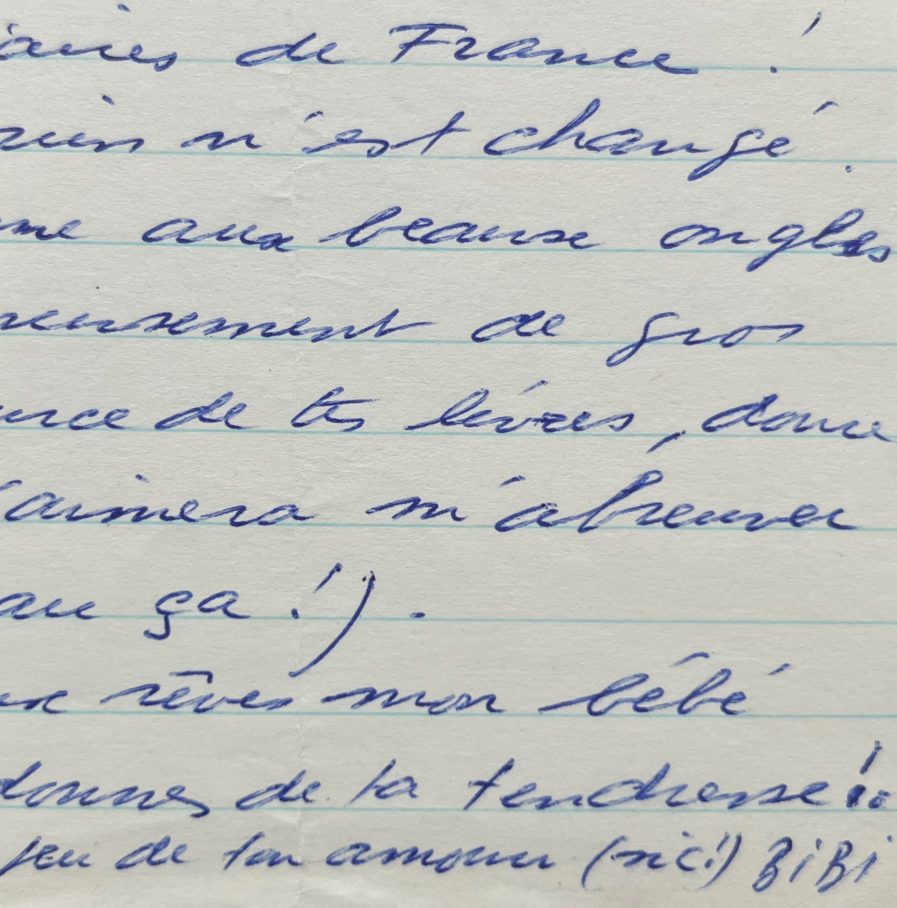 aires de France !
rien n'est changé.
me aux beaux ongles
reusement de gros
urce de tes lèvres, donc
aimera m'abreuver
au ça !).
ux rêves mon bébé
donnes de ta tendresse !
peu de ton amour (sic!) BiBi